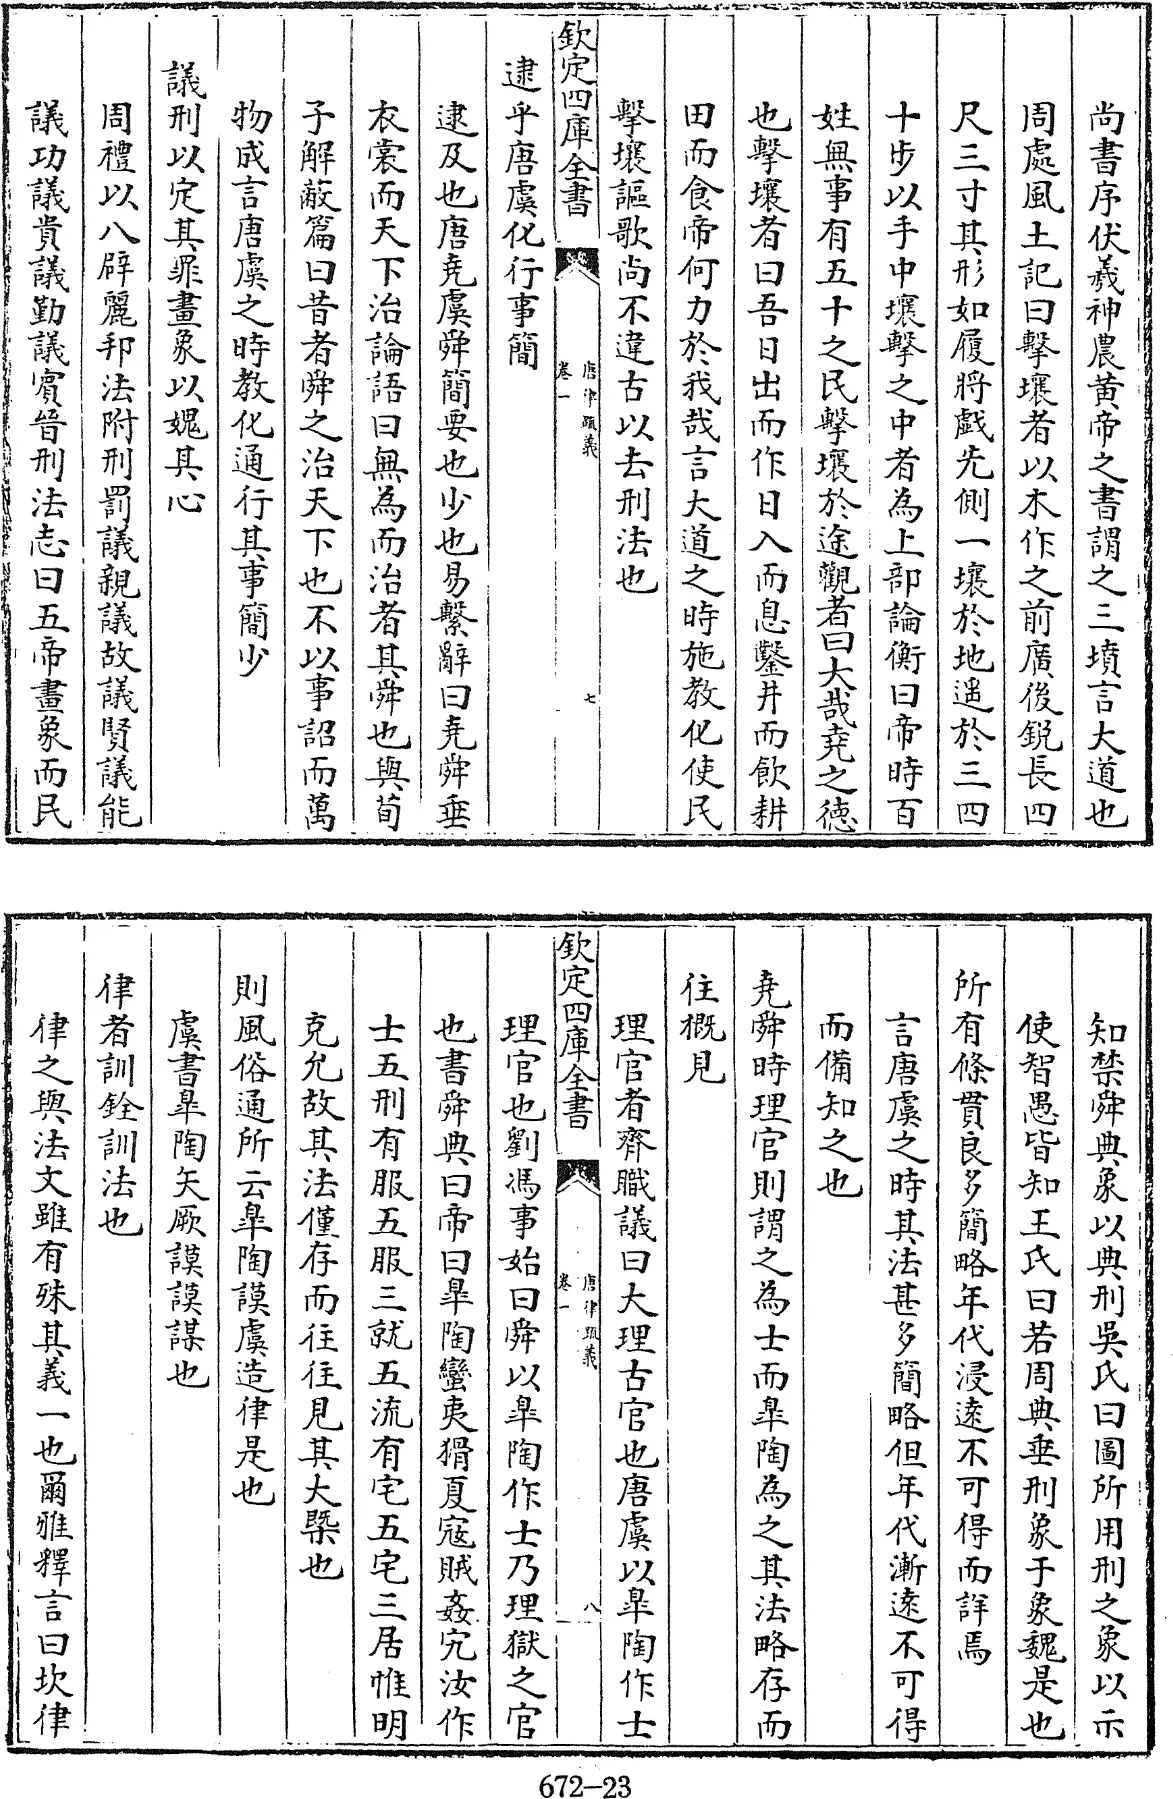 尚書序伏羲神農黄帝之書謂之三墳言大道也
周處風土記曰擊壤者以木作之前廣後銳長四
尺三寸其形如履將戲先側一壤於地遥於三四
十步以手中壤擊之中者為上部論衡曰帝時百
姓無事有五十之民擊壤於途觀者曰大哉堯之德
也擊壤者曰吾日出而作日入而息鑿井而飲耕
田而食帝何力於我哉言大道之時施教化使民
擊壤謳歌尚不違古以去刑法也
欽定四庫全書
唐律疏義
卷一
七
逮乎唐虞化行事簡
逮及也唐堯虞舜簡要也少也易繫辭曰堯舜垂
衣裳而天下治論語曰無為而治者其舜也與荀
子解蔽篇曰昔者舜之治天下也不以事詔而萬
物成言唐虞之時教化通行其事簡少
議刑以定其罪畫象以媿其心
周禮以八辟麗邦法附刑罰議親議故議賢議能
議功議貴議勤議賓晉刑法志曰五帝畫象而民
知禁舜典象以典刑吳氏曰圖所用刑之象以示
使智愚皆知王氏曰若周典垂刑象于象魏是也
所有條貫良多簡略年代浸遠不可得而詳焉
言唐虞之時其法甚多簡略但年代漸遠不可得
而備知之也
堯舜時理官則謂之為士而臯陶為之其法略存而
往概見
理官者齊職議曰大理古官也唐虞以臯陶作士
欽定四庫全書
唐律疏義
卷一
八
理官也劉馮事始曰舜以臯陶作士乃理獄之官
也書舜典曰帝曰臯陶蠻夷猾夏寇賊姦宄汝作
士五刑有服五服三就五流有宅五宅三居惟明
克允故其法僅存而往往見其大槩也
則風俗通所云臯陶謨虞造律是也
虞書臯陶矢厥謨謨謀也
律者訓銓訓法也
律之與法文雖有殊其義一也爾雅釋言曰坎律
672-23